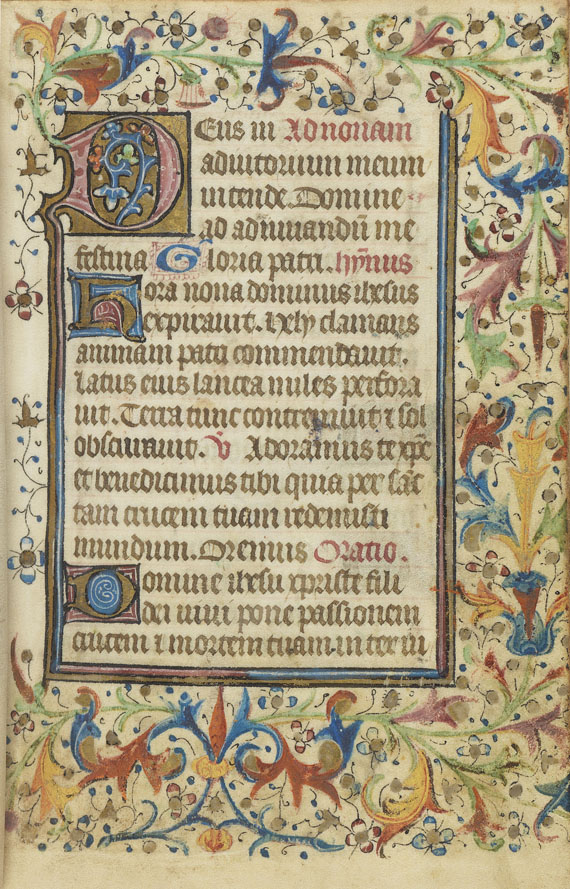 Deus in Ad nonam
adiutorium meum
intende Domine
ad adiuuandū me
festina Gloria patri. hÿnus
Hora nona dominus ihesus
expirauit. hely clamans
animam patri commendauit.
latus eius lancea miles perfora
uit. Terra tunc contremuit ⁊ sol
obscurauit. V Adoramus te xp̄e
et benedicimus tibi quia per sāc
tam crucem tuam redemisti
mundum. Oremus Oratio.
Domine ihesu xpriste fili
dei uiui pone passionem
crucem ⁊ mortem tuam. inter iu